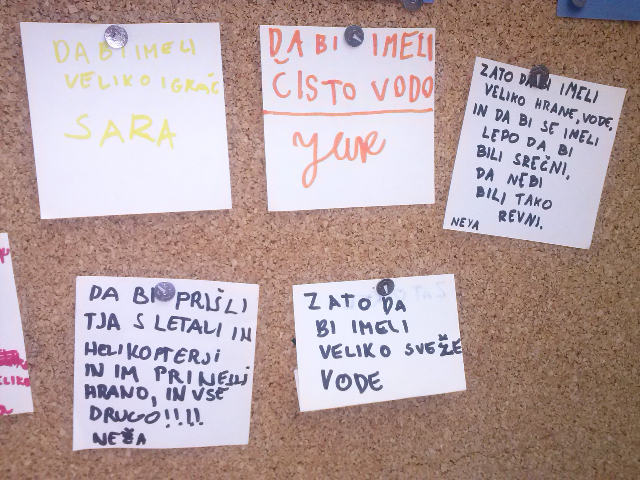 DA BI IMELI
VELIKO IGRAČ
SARA
DA BI IMELI
ČISTO VODO
ZATO DA BI IMELI
VELIKO HRANE, VODE,
IN DA BI SE IMELI
LEPO DA BI
BILI SREČNI.
DA NEBI
BILI TAKO
REVNI.
NEYA
DA BI PRIŠLI
TJA S LETALI IN
HELIKOPTERJI
IN IM PRINESLI
HRANO, IN VSE
DRUGO!!!!
NEŽA
ZATO DA
BI IMELI
VELIKO SVEŽE
VODE